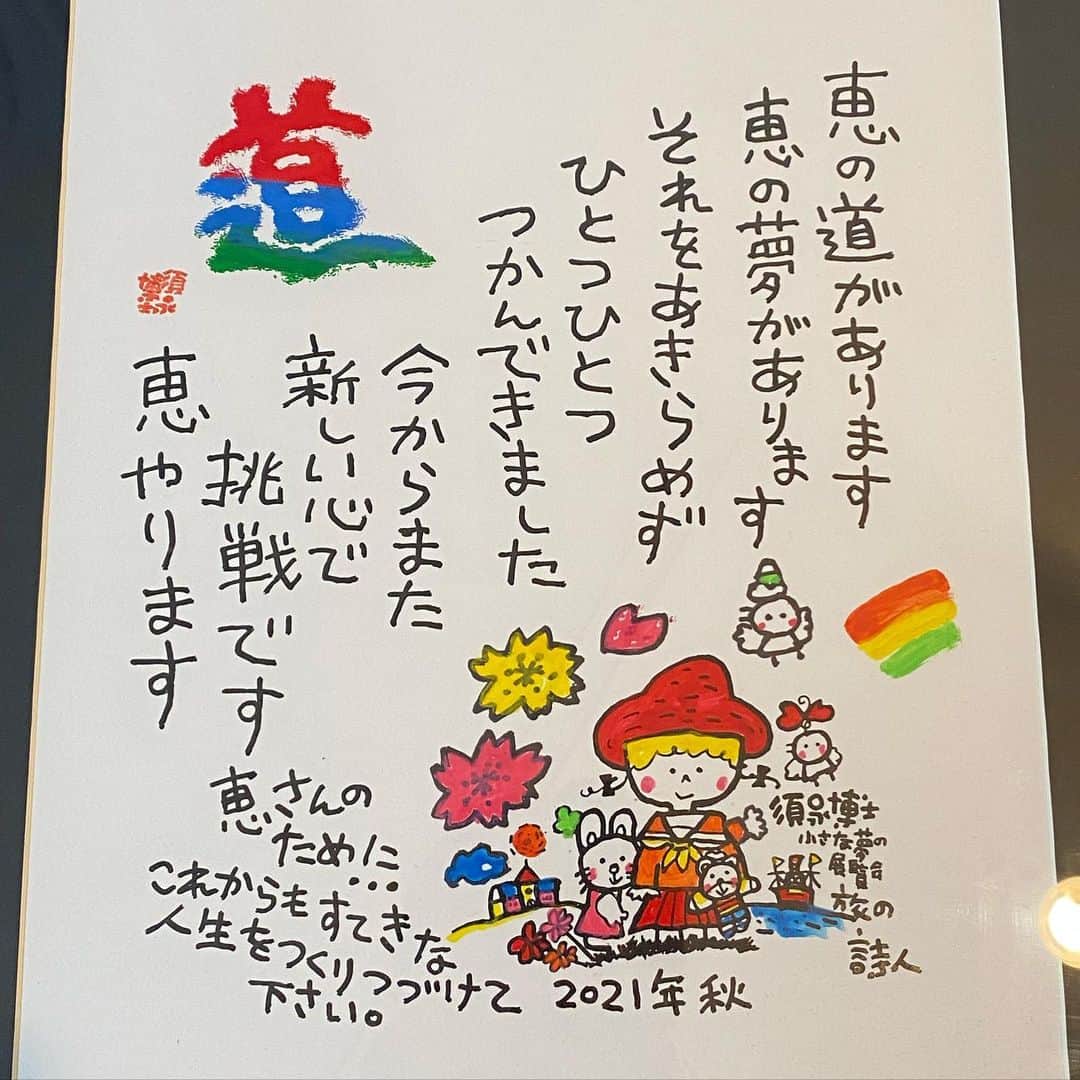 恵の道があります
恵の夢があります
それをあきらめず
ひとつひとつ
つかんできました
今からまた
新しい心で
挑戦です
恵やります
恵さんの
ために…
これからもすてきな
人生をつくりつづけて
下さい。
2021年秋
須永博士
小さな夢の
展覧会
旅の
詩人
須永
博士